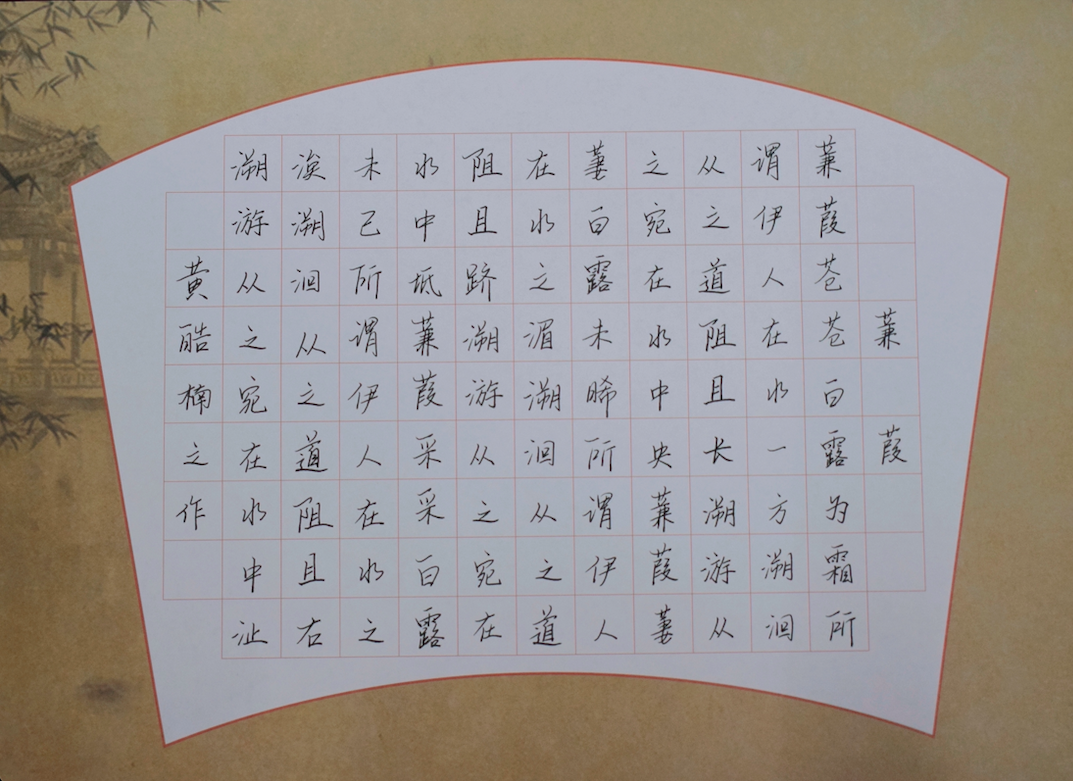 蒹葭
蒹葭苍苍白露为霜所
谓伊人在水一方溯洄
从之道阻且长溯游从
之宛在水中央蒹葭萋
萋白露未晞所谓伊人
在水之湄溯洄从之道
阻且跻溯游从之宛在
水中坻蒹葭采采白露
未已所谓伊人在水之
涘溯洄从之道阻且右
溯游从之宛在水中沚
黄酷楠之作